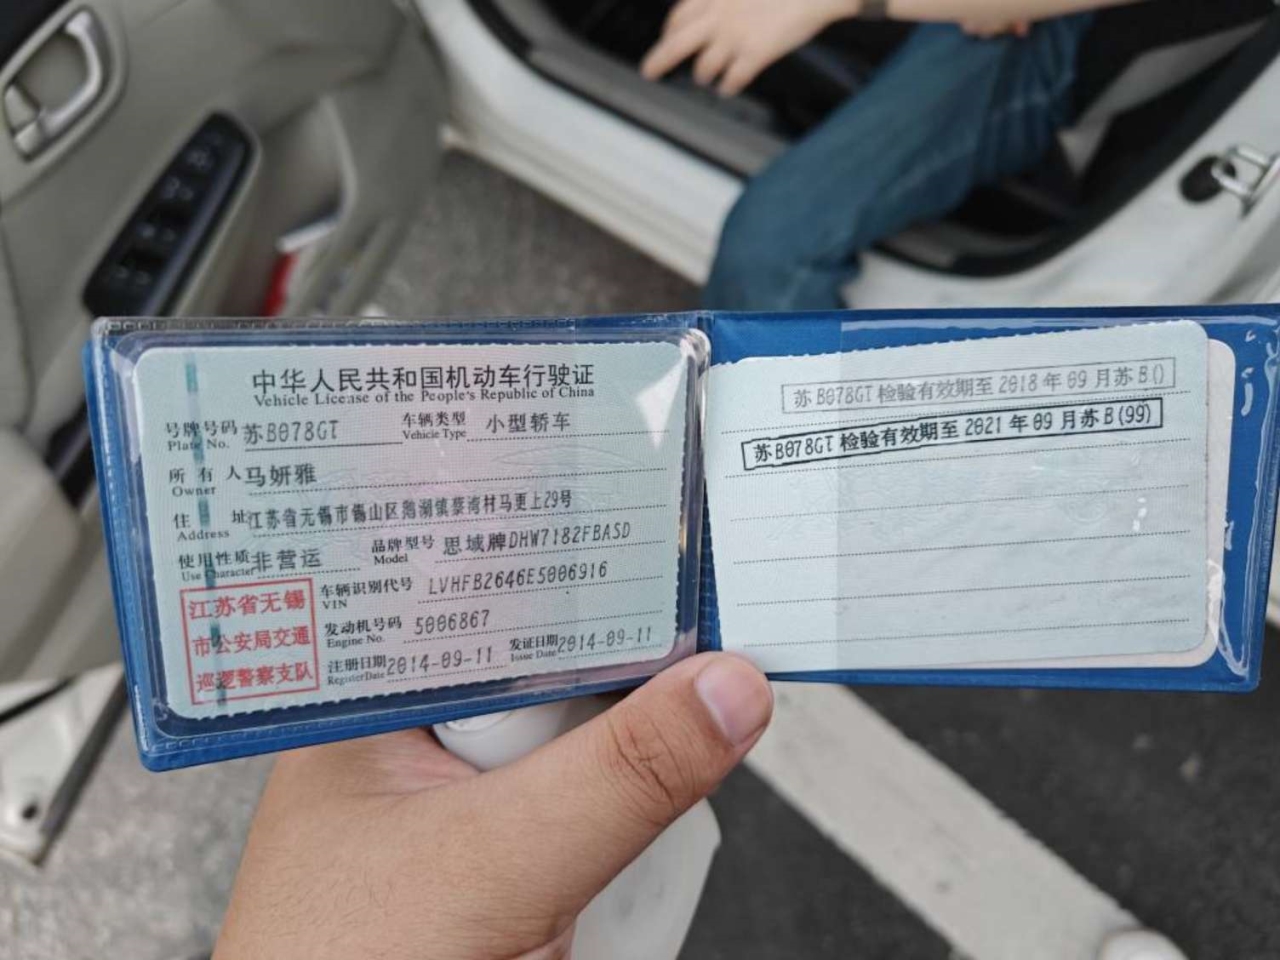 中华人民共和国机动车行驶证
Vehicle License of the People's Republic of China
号牌号码 苏B078GT 车辆类型 小型轿车
Plate No. Vehicle Type
所有人 马妍雅
Owner
住址 江苏省无锡市锡山区鹅湖镇蔡湾村马更上29号
Address
使用性质 非营运 品牌型号 思域牌DHW7182FBASD
Use Character Model
江苏省无锡
市公安局交通
巡逻警察支队
车辆识别代号 LVHFB2646E5006916
VIN
发动机号码 5006867
Engine No.
注册日期 2014-09-11 发证日期 2014-09-11
Register Date Issue Date
苏B078GT 检验有效期至 2018 年 09 月苏B()
苏B078GT 检验有效期至 2021 年 09 月苏B(99)